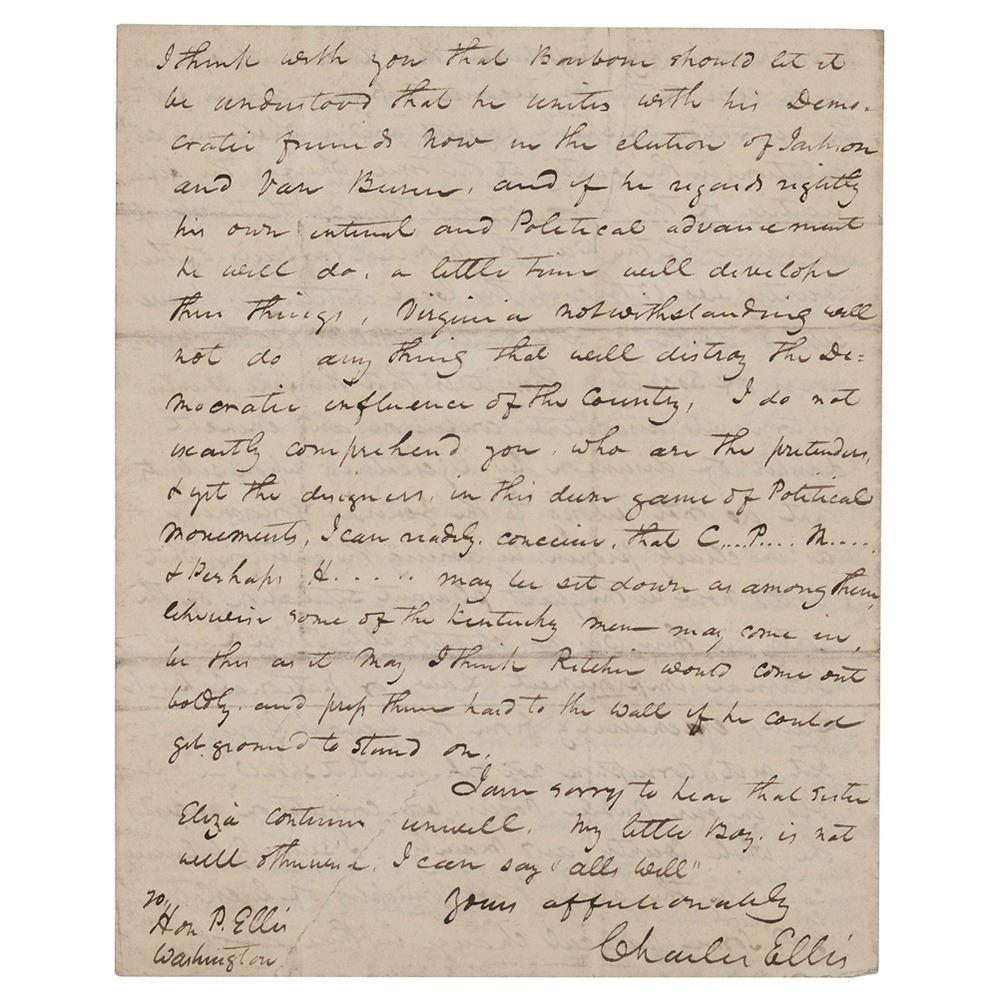 I think with you that Barbour should let it
be understood that he unites with his Demo-
cratic friends now in the election of Jackson
and Van Buren, and if he regards rightly
his own interest and Political advancement
he will do, a little time will develope
these things, Virginia notwithstanding will
not do any thing that will distroy the De=
mocratic influence of the Country, I do not
exactly comprehend you. who are the pretenders,
& yet the designers, in this deep game of Political
Movements, I can readily. conceive, that C...P.... M.....
& Perhaps H..... may be set down as among them,
likewise some of the Kentucky men may come in,
be this as it May I think Ritchie would come out
boldly. and press them hard to the wall if he could
get ground to stand on.
I am sorry to hear that sister
Eliza continues unwell. My little Boy. is not
well otherwise. I can say "alls well"
yours affectionately
Charles Ellis
To,
Hon P. Ellis
Washington